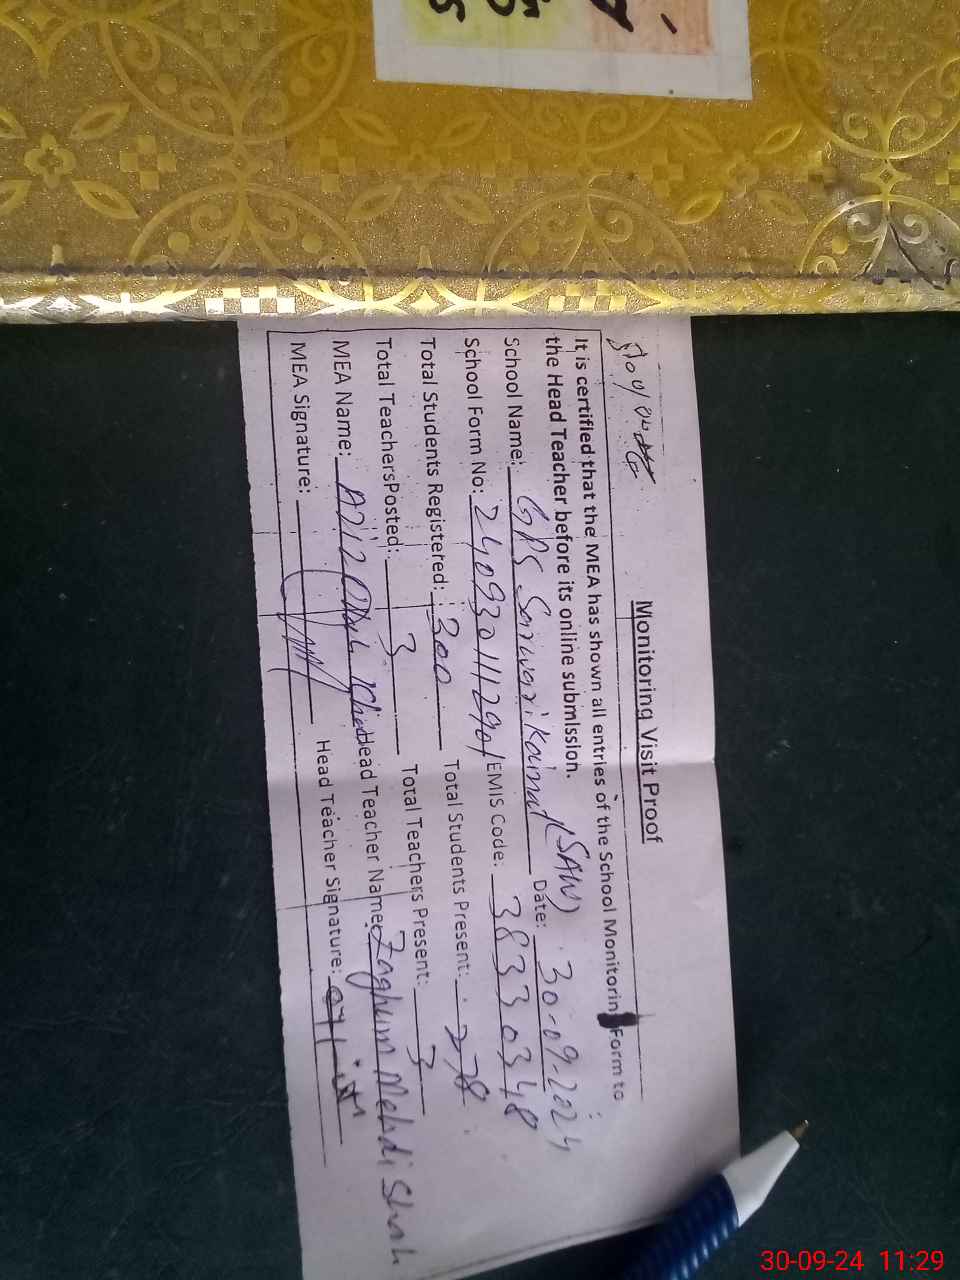 Monitoring Visit Proof
It is certified that the MEA has shown all entries of the School Monitorin Form to
the Head Teacher before its online submission.
School Name: GPS (SAW) Date: 30-09-2024
School Form No: 240930111290/ EMIS Code: 38330348
Total Students Registered: 300 Total Students Present: 278
Total TeachersPosted: 3 Total Teachers Present: 3
MEA Name: Head Teacher Name: Zaghum Mehdi Shah
MEA Signature: Head Teacher Signature:
30-09-24 11:29